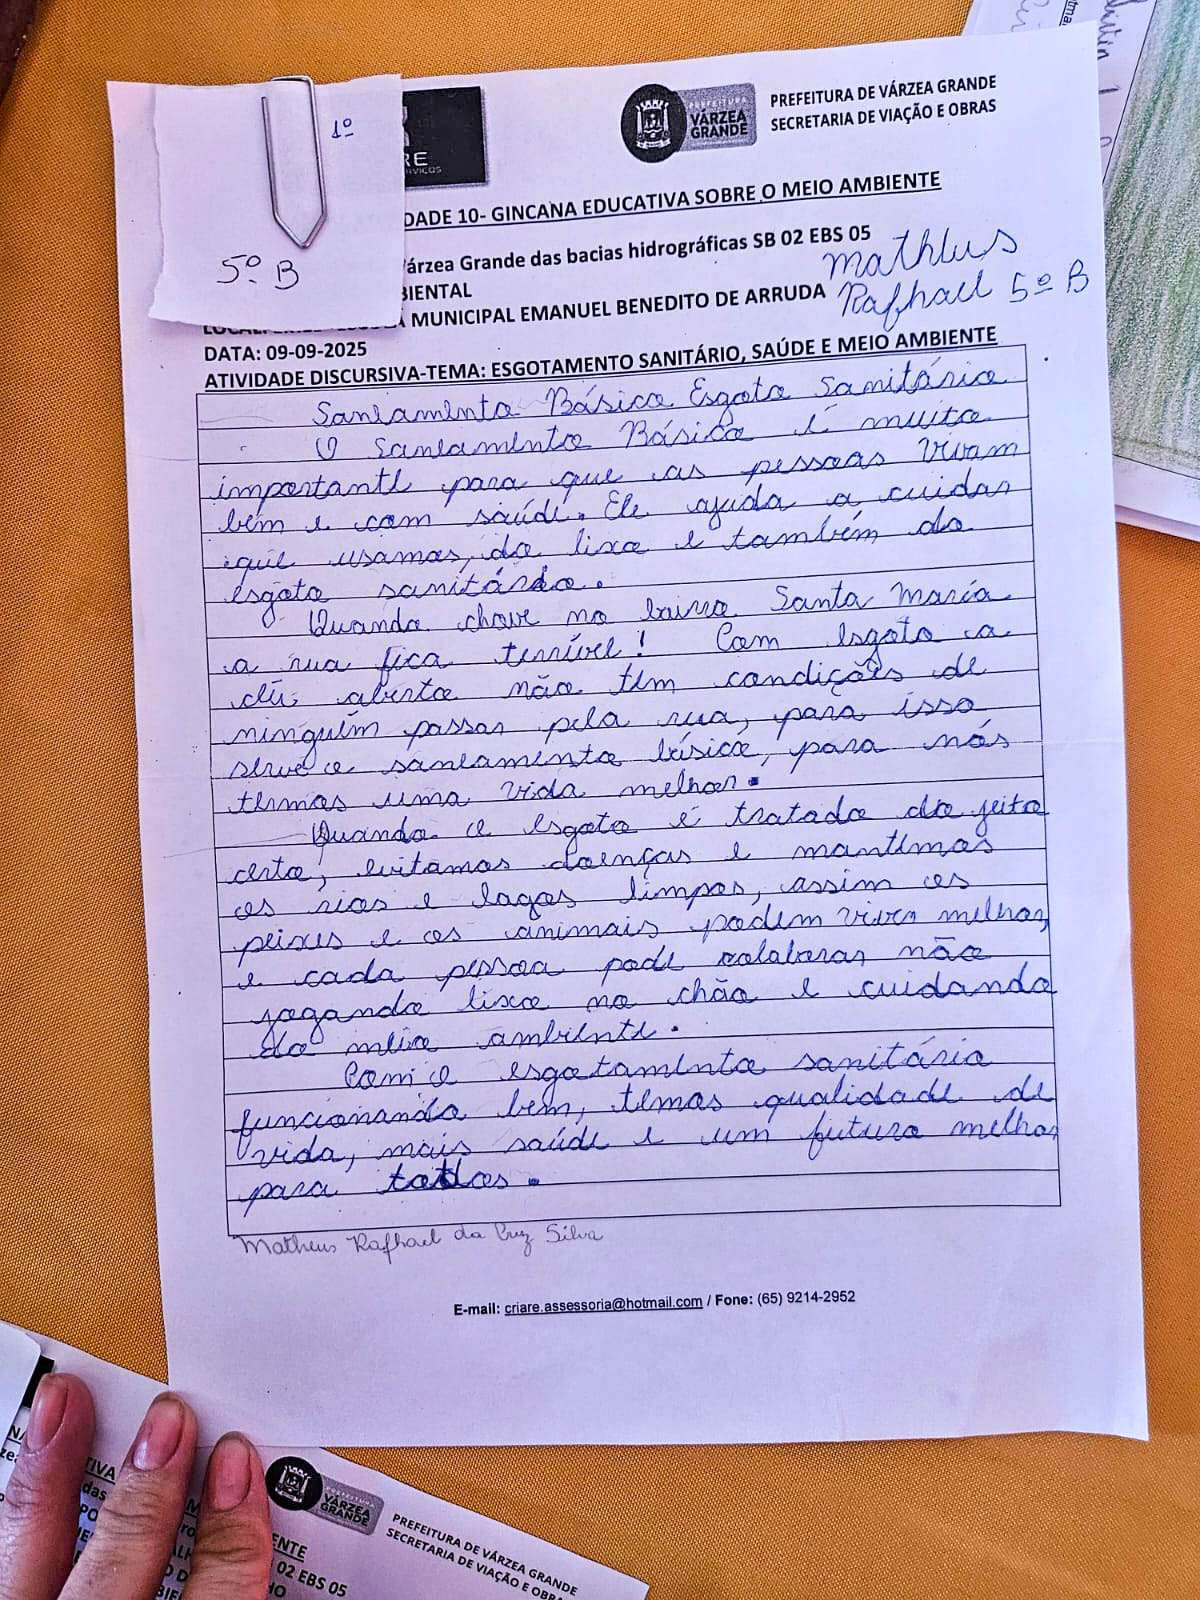 1º
5º B
RE
PREFEITURA
VÁRZEA
GRANDE
PREFEITURA DE VÁRZEA GRANDE
SECRETARIA DE VIAÇÃO E OBRAS
DADE 10- GINCANA EDUCATIVA SOBRE O MEIO AMBIENTE
Várzea Grande das bacias hidrográficas SB 02 EBS 05
BIENTAL
MUNICIPAL EMANUEL BENEDITO DE ARRUDA
Matheus
Rafhael 5º B
DATA: 09-09-2025
ATIVIDADE DISCURSIVA-TEMA: ESGOTAMENTO SANITÁRIO, SAÚDE E MEIO AMBIENTE
Saneamento Básico Esgoto Sanitário
O Saneamento Básico é muito
importante para que as pessoas vivam
bem e com saúde. Ele ajuda a cuidar
que usamos, do lixo e também do
esgoto sanitário.
Quando chove no bairro Santa Maria
a rua fica terrível! Com esgoto a
céu aberto não tem condições de
ninguém passar pela rua, para isso
serve o saneamento básico, para nós
termos uma vida melhor.
Quando o esgoto é tratado do jeito
certo, evitamos doenças e mantemos
os rios e lagos limpos, assim os
peixes e os animais podem viver melhor,
e cada pessoa pode colaborar não
jogando lixo no chão e cuidando
do meio ambiente.
Com o esgotamento sanitário
funcionando bem, temos qualidade de
vida, mais saúde e um futuro melhor
para todos.
Matheus Rafhael da Cruz Silva
E-mail: criare.assessoria@hotmail.com / Fone: (65) 9214-2952
PREFEITURA
VÁRZEA
GRANDE
PREFEITURA DE VÁRZEA GRANDE
SECRETARIA DE VIAÇÃO E OBRA
TIVA
ENTE
02 EBS 05